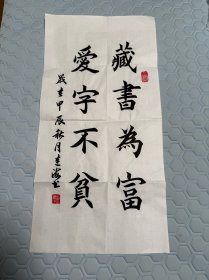 藏書為富
愛字不貧
歲在甲辰秋月